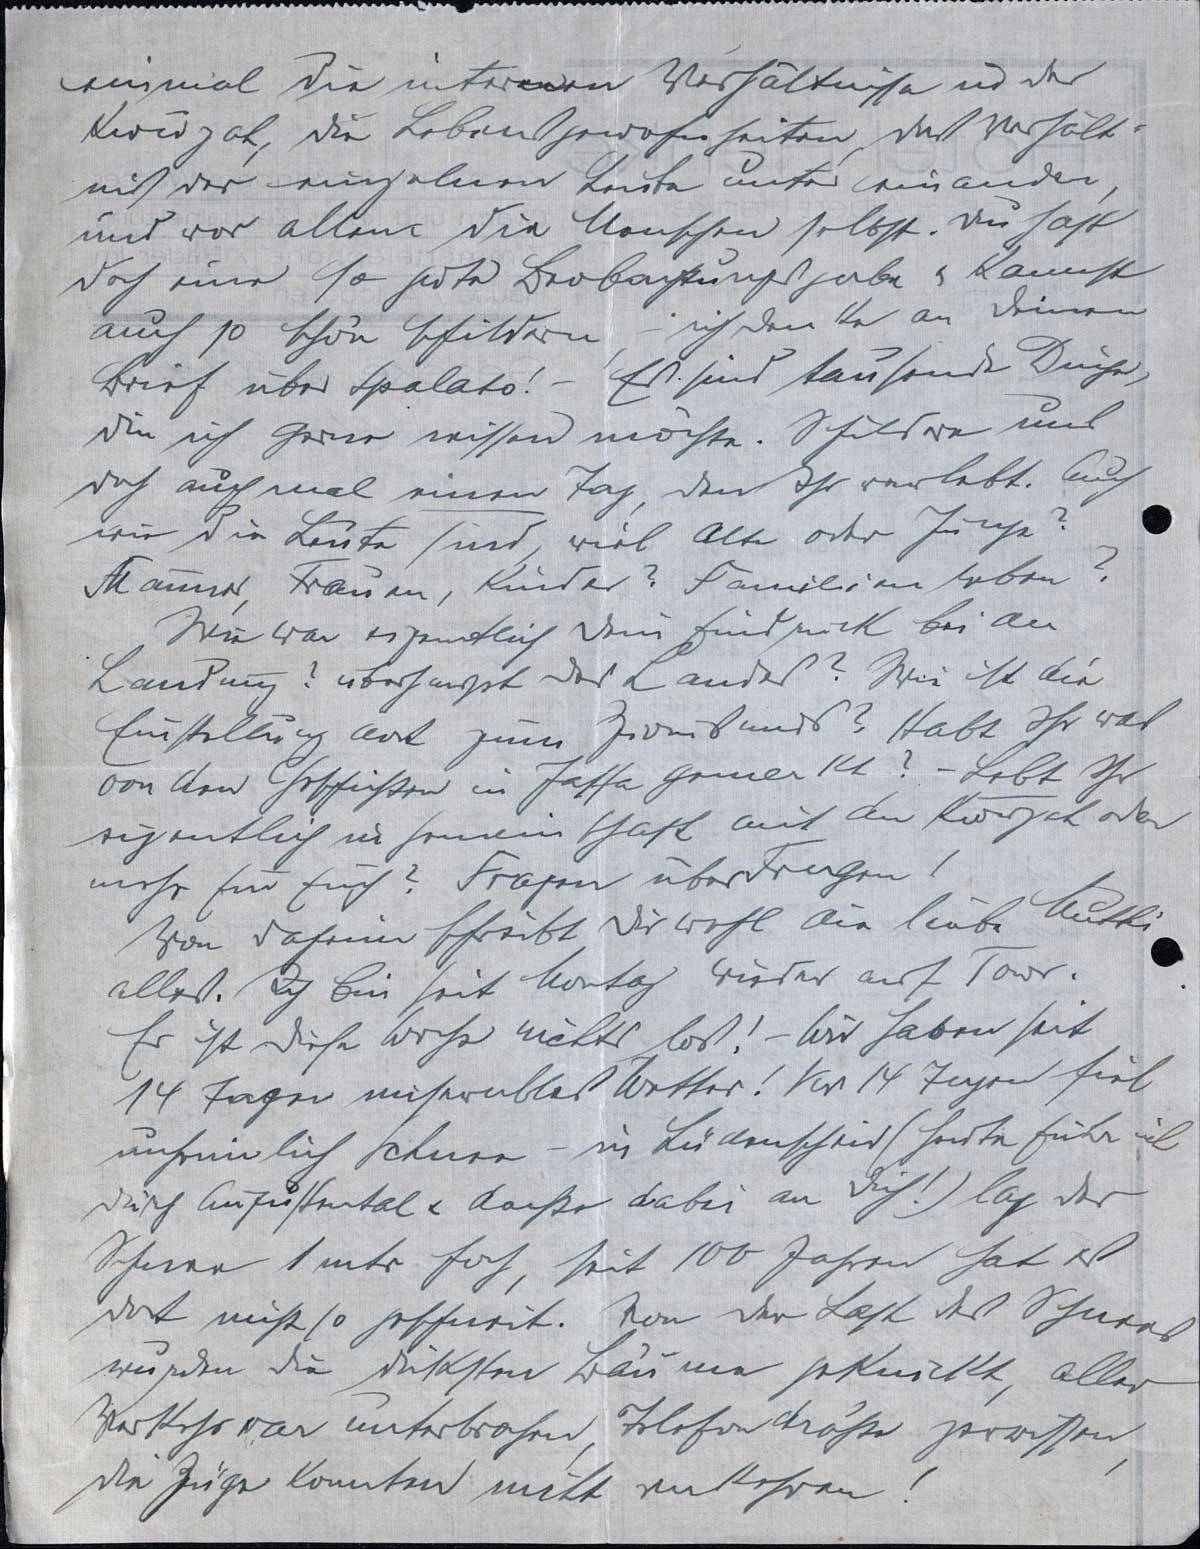 einmal die internen Verhältnisse in der
Kwuzah, die Lebensgewohnheiten, das Verhält-
nis der einzelnen Leute unter einander,
und vor allem die Menschen selbst. Du hast
doch eine so gute Beobachtungsgabe & kannst
auch so schön schildern, – ich denke an Deinen
Brief über Spalato! – Es sind tausende Dinge,
die ich gerne wissen möchte. Schildre uns
doch auch mal einen Tag, den Ihr verlebt. Auch
wie die Leute sind, viel Alte oder Junge?
Männer, Frauen, Kinder? Familienleben?
Wie war eigentlich Dein Eindruck bei der
Landung? überhaupt des Landes? Wie ist die
Einstellung dort zum Zionismus? Habt Ihr was
von den Geschichten in Jaffa gemerkt? – Lebt Ihr
eigentlich in Gemeinschaft mit der Kwuzah oder
mehr für Euch? Fragen über Fragen!
Von daheim schreibt Dir wohl die liebe Mutti
alles. Ich bin seit Montag wieder auf Tour.
Es ist diese Woche nichts los! – Wir haben seit
14 Tagen miserables Wetter! Vor 14 Tagen fiel
unheimlich Schnee – in Lüdenscheid (heute fuhr ich
durch Augustental & dachte dabei an Dich!) lag der
Schnee 1 mtr hoch, seit 100 Jahren hat es
dort nicht so geschneit. Von der Last des Schnees
wurden die dicksten Bäume geknickt, aller
Verkehr war unterbrochen, Telefondrähte zerrissen,
die Züge konnten nicht verkehren!